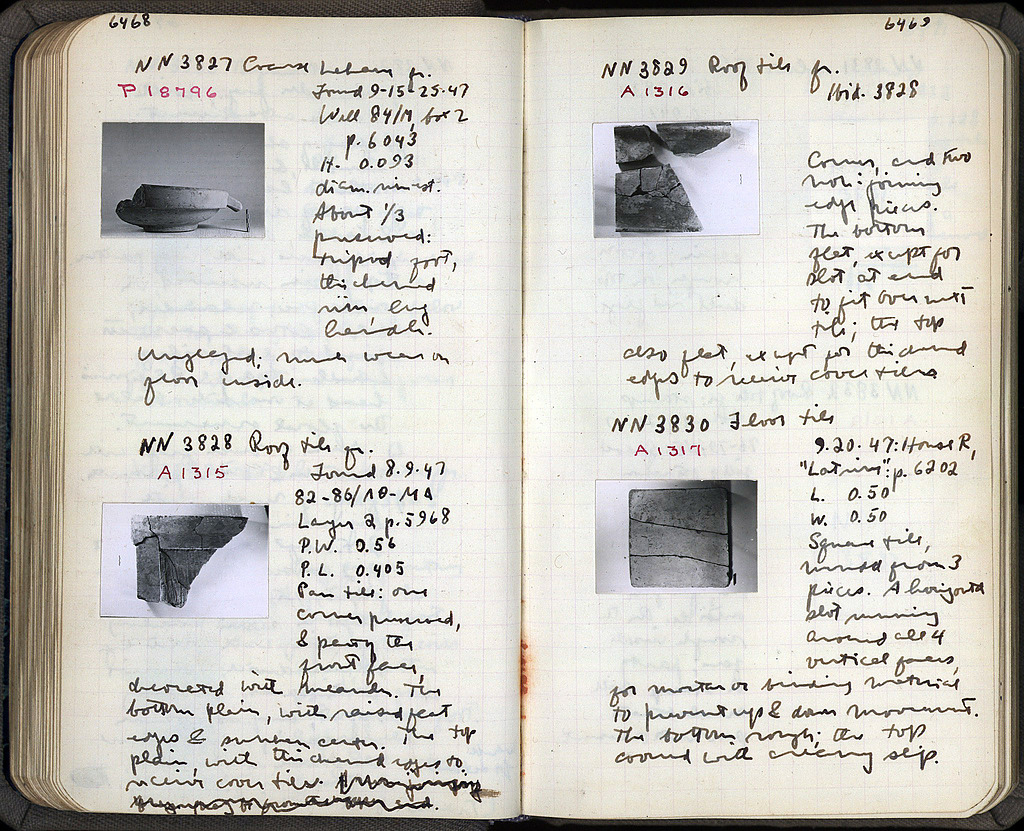 6468
NN 3827 Coarse lekane fr.
P 18796
Found 9-15-25-47
Well 84/M, box 2
p. 6043
H. 0.093
diam. rim est.
About 1/3
preserved:
tripod foot,
thickened
rim lug
handle.
Unglazed; much wear on
floor inside.
NN 3828 Roof tile fr.
A 1315
Found 8.9.47
82-86/ΛΘ-ΜΑ
Layer 2 p. 5968
P.W. 0.56
P.L. 0.405
Pan tile: one
corner preserved,
& party the
front face,
decorated with meander. The
bottom plain, with raised flat
edges & sunken center. The top
plain, with thickened edges to
receive cover tiles.
6469
NN 3829 Roof tile fr.
A 1316
Ibid. 3828
Corner, and two
non-joining
edge pieces.
The bottom
flat, except for
slot at end
to fit over next
tile; the top
also flat, except for thickened
edges to receive cover tiles
NN 3830 Floor tile
A 1317
9.20.47: House R,
"Latrine": p. 6202
L. 0.50
W. 0.50
Square tile,
mended from 3
pieces. A horizontal
slot running
around all 4
vertical faces,
for mortar or binding material
to prevent up & down movement.
The bottom rough; the top
covered with creamy slip.